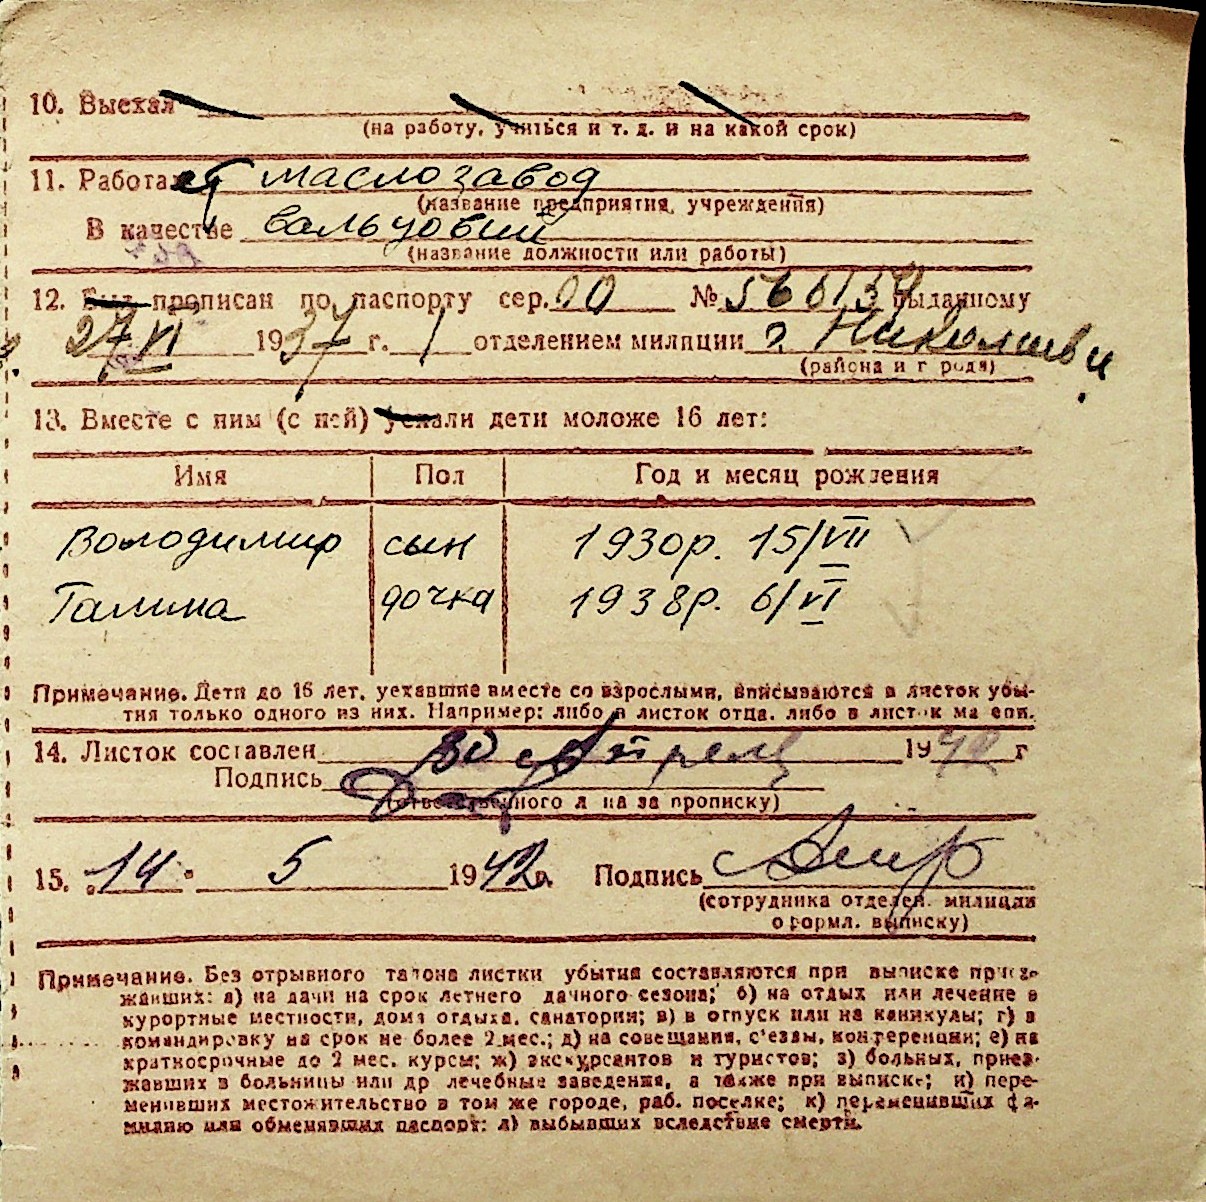 10. Выехал
(на работу, учиться и т. д. и на какой срок)
11. Работает маслозавод
(название предприятия, учреждения)
В качестве вальцовий
(название должности или работы)
12. Был прописан по паспорту сер. 00 № 566159 выданному
27/VI 1937 г. 1 отделением милиции г. Николаеви
(района и города)
13. Вместе с ним (с ней) уехали дети моложе 16 лет:
Имя Пол Год и месяц рождения
Володимир сын 1930р. 15/VII
Галина дочка 1938р. 6/VI
Примечание. Дети до 16 лет, уехавшие вместе со взрослыми, вписываются в листок убы-
тия только одного из них. Например: либо в листок отца, либо в листок матери.
14. Листок составлен 30 Апреля 1942 г
Подпись
(ответственного лица за прописку)
15. 14 5 1942 г. Подпись
(сотрудника отделен. милиции
оформл. выписку)
Примечание. Без отрывного талона листки убытия составляются при выписке приез-
жавших: а) на дачи на срок летнего дачного сезона; б) на отдых или лечение в
курортные местности, дома отдыха, санатории; в) в отпуск или на каникулы; г) в
командировку на срок не более 2 мес.; д) на совещания, с'езды, конференции; е) на
краткосрочные до 2 мес. курсы; ж) экскурсантов и туристов; з) больных, приез-
жавших в больницы или др лечебные заведения, а также при выписке; и) пере-
менивших местожительство в том же городе, раб. поселке; к) переменивших фа-
милию или обменявших паспорт: л) выбывших вследствие смерти.